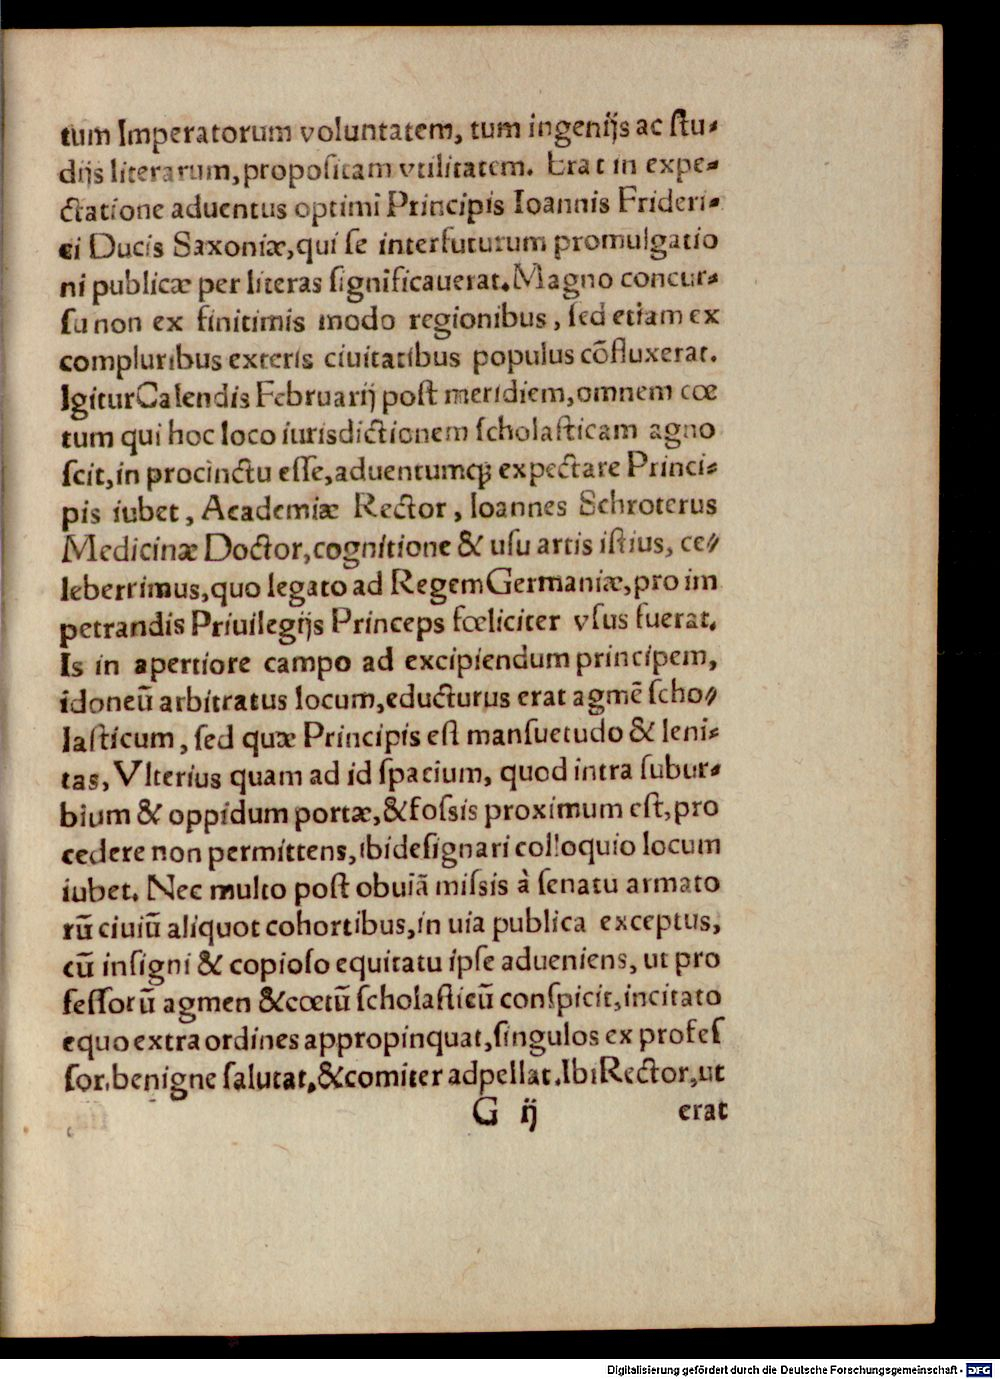 tum Imperatorum voluntatem, tum ingenijs ac ſtu-
dijs literarum, propoſitam vtilitatem. Erat in expe-
ctatione aduentus optimi Principis Ioannis Frideri-
ci Ducis Saxoniæ, qui ſe interfuturum promulgatio
ni publicæ per literas ſignificauerat. Magno concur-
ſu non ex finitimis modo regionibus, ſed etiam ex
compluribus exteris ciuitatibus populus cõfluxerat.
Igitur Calendis Februarij poſt meridiem, omnem cœ
tum qui hoc loco iurisdictionem ſcholaſticam agno
ſcit, in procinctu eſſe, aduentumqꝫ expectare Princi-
pis iubet, Academiæ Rector, Ioannes Schroterus
Medicinæ Doctor, cognitione & uſu artis iſtius, ce-
leberrimus, quo legato ad Regem Germaniæ, pro im
petrandis Priuilegijs Princeps fœliciter vſus fuerat.
Is in apertiore campo ad excipiendum principem,
idoneũ arbitratus locum, educturus erat agmẽ ſcho-
laſticum, ſed quæ Principis eſt manſuetudo & leni-
tas, Vlterius quam ad id ſpacium, quod intra ſubur-
bium & oppidum portæ, & foſsis proximum eſt, pro
cedere non permittens, ibi deſignari colloquio locum
iubet. Nec multo poſt obuiã miſsis à ſenatu armato
rũ ciuiũ aliquot cohortibus, in uia publica exceptus,
cũ inſigni & copioſo equitatu ipſe adueniens, ut pro
feſſorũ agmen & cœtũ ſcholaſticũ conſpicit, incitato
equo extra ordines appropinquat, ſingulos ex profeſ
ſor. benigne ſalutat, & comiter adpellat. Ibi Rector, ut
G ij erat
Digitalisierung gefördert durch die Deutsche Forschungsgemeinschaft - DFG